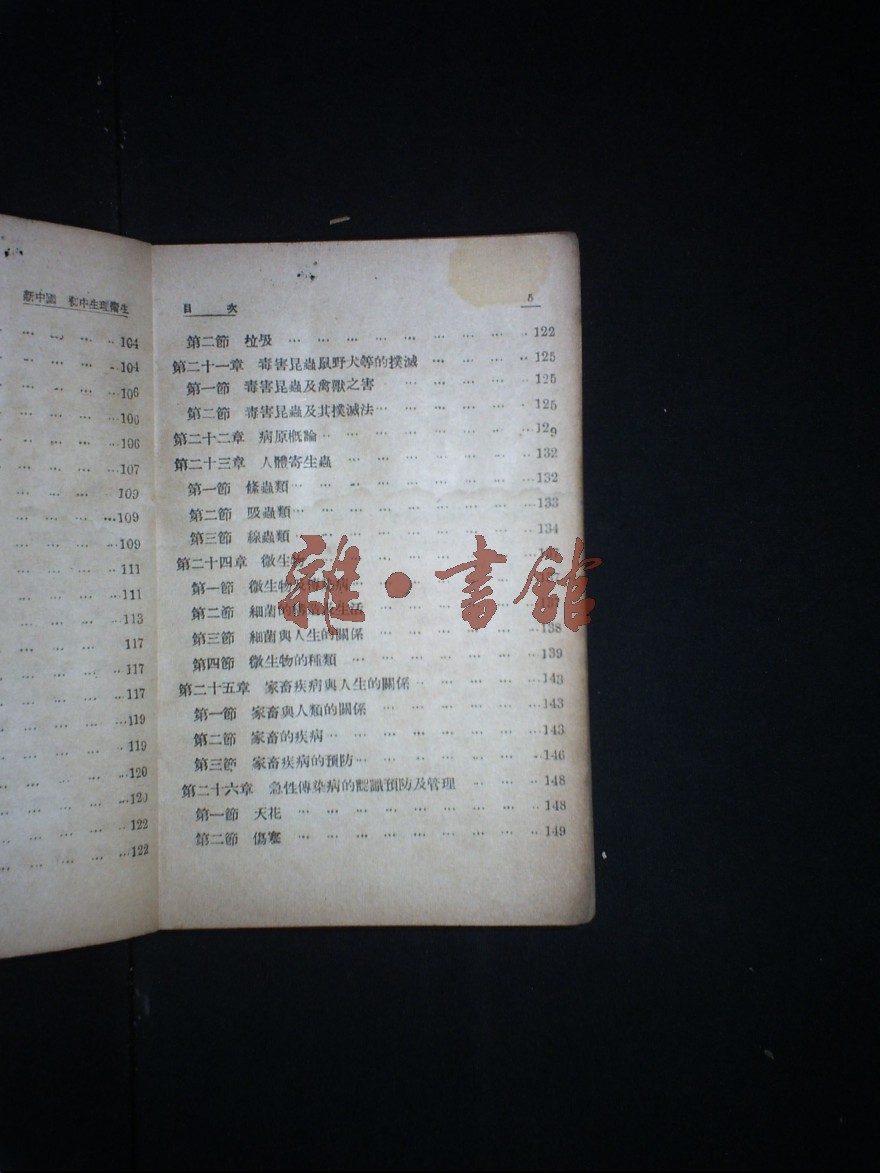 新中國 初中生理衞生
104
104
106
106
106
107
109
109
109
111
111
113
117
117
117
119
119
120
120
122
122
目 次 5
第二節 垃圾 122
第二十一章 毒害昆蟲鼠野犬等的撲滅 125
第一節 毒害昆蟲及禽獸之害 125
第二節 毒害昆蟲及其撲滅法 125
第二十二章 病原槪論 129
第二十三章 人體寄生蟲 132
第一節 條蟲類 132
第二節 吸蟲類 133
第三節 線蟲類 134
第二十四章 微生物
第一節 微生物及傳染病
第二節 細菌的 生活 137
第三節 細菌與人生的關係 138
第四節 微生物的種類 139
第二十五章 家畜疾病與人生的關係 143
第一節 家畜與人類的關係 143
第二節 家畜的疾病 143
第三節 家畜疾病的預防 146
第二十六章 急性傳染病的認識預防及管理 148
第一節 天花 148
第二節 傷寒 149
雜·書館